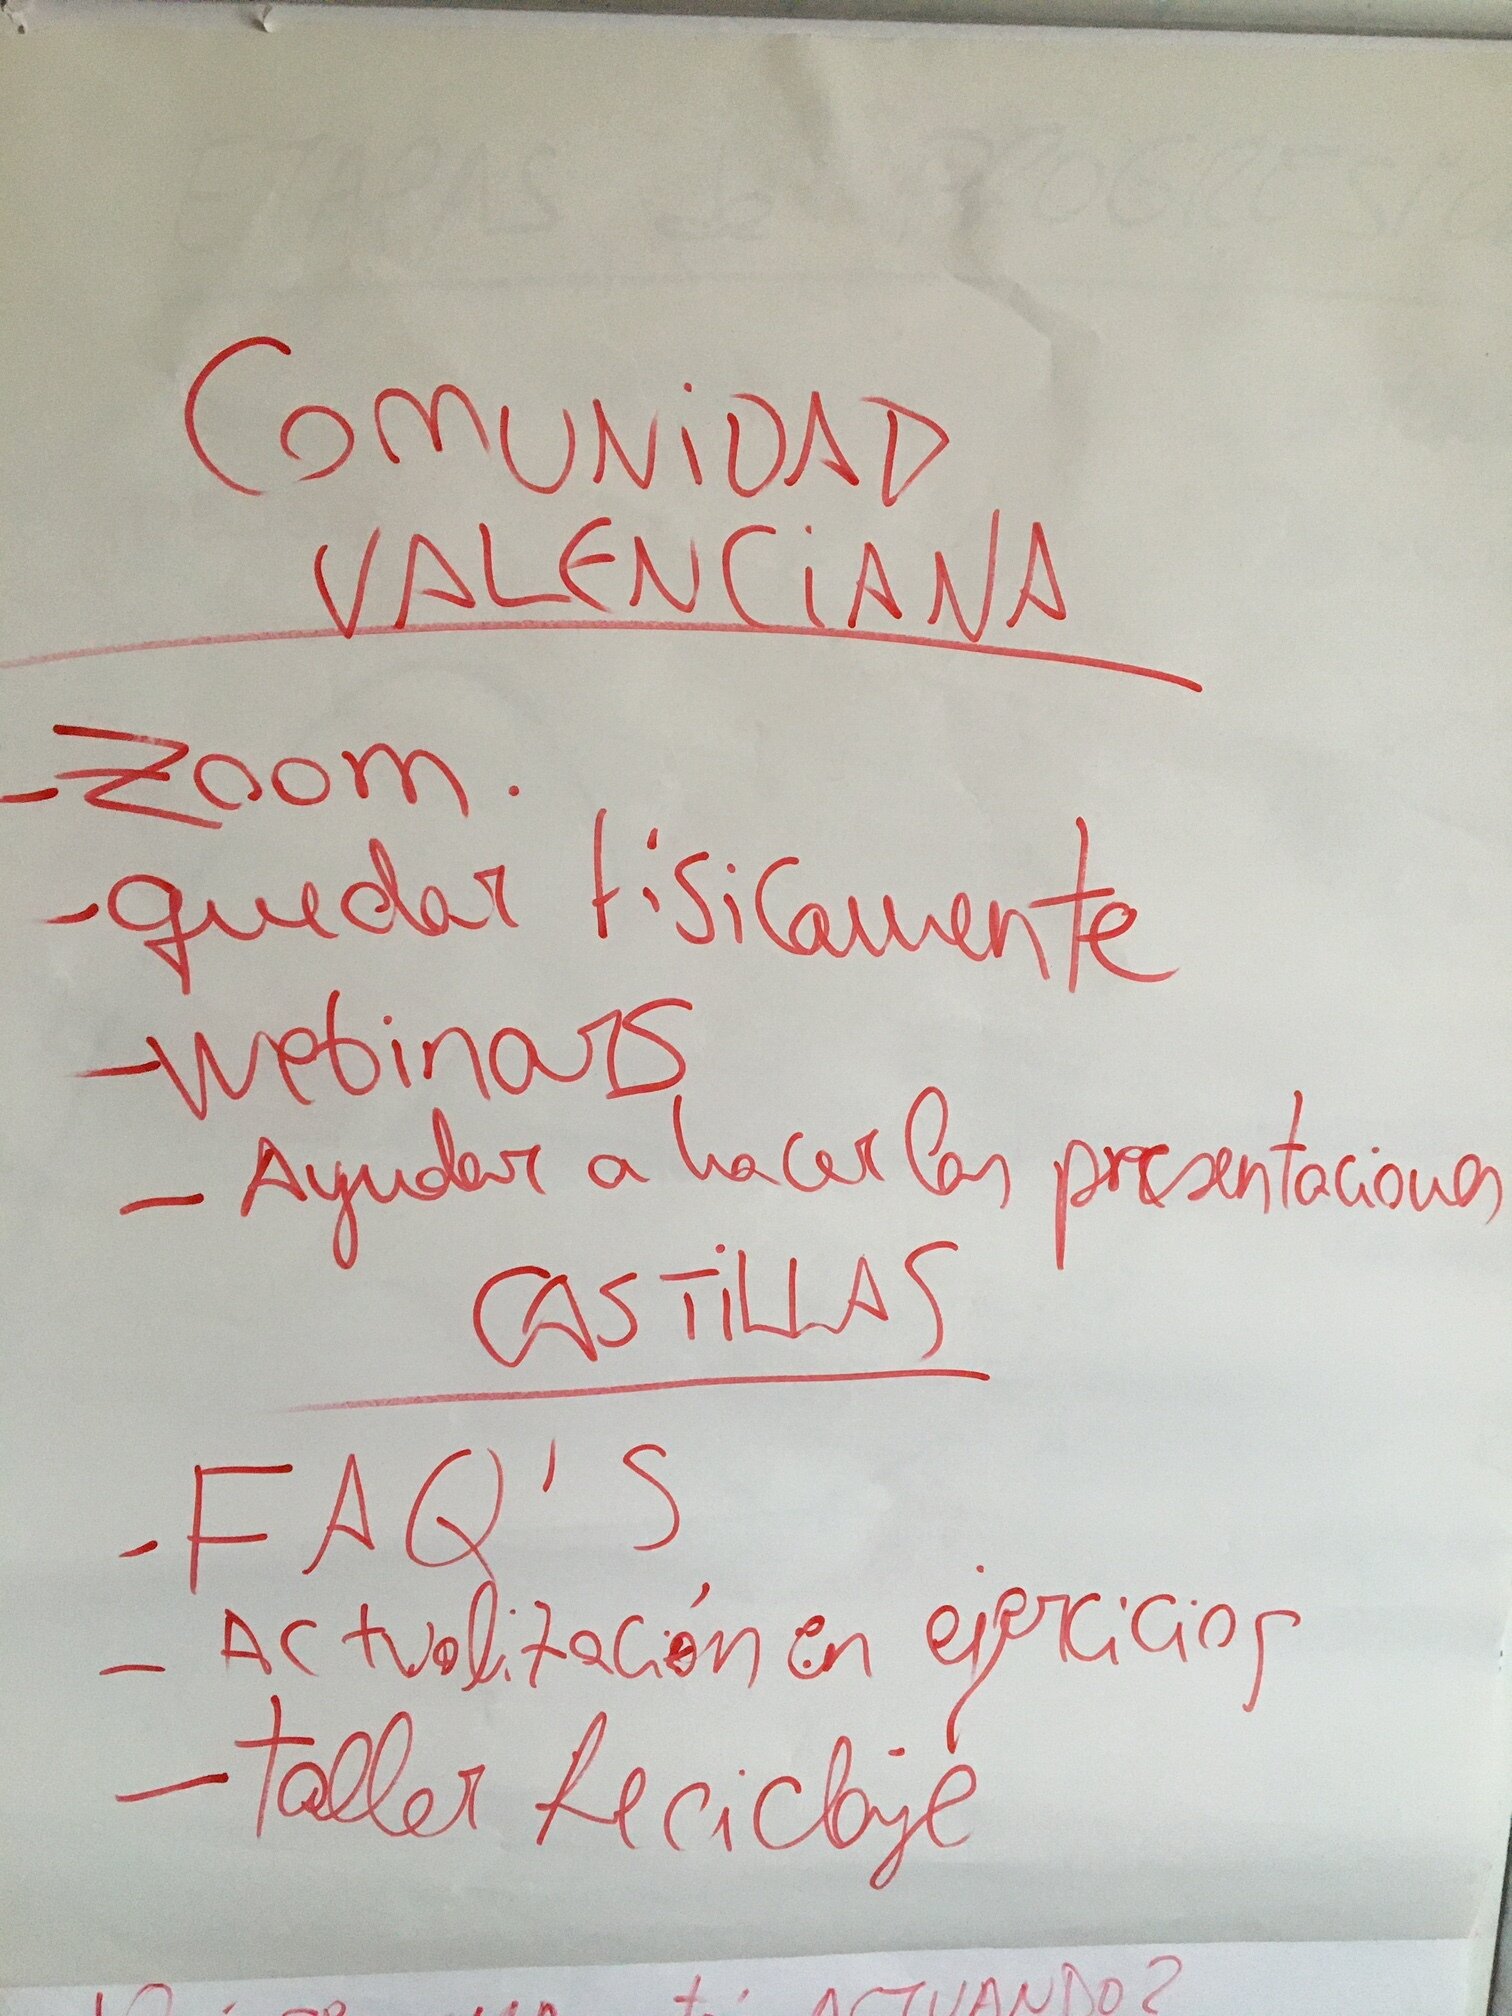 ETAPAS de
COMUNIDAD
VALENCIANA
- Zoom.
- quedar físicamente
- Webinars
- Ayudar a hacer las presentaciones
CASTILLAS
- FAQ'S
- Actualización en ejercicios
- taller Reciclaje
ACTUANDO?